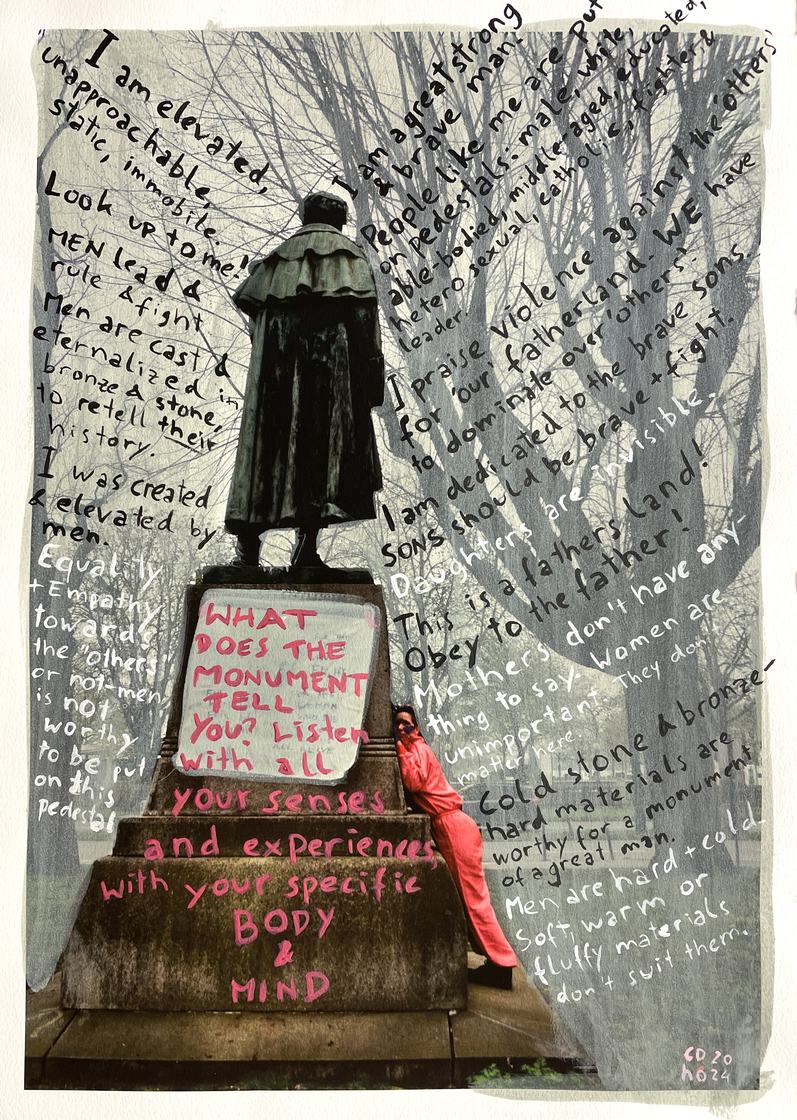 I am elevated,
unapproachable,
static, immobile.
Look up to me!
MEN lead &
rule & fight
Men are cast &
eternalized in
bronze & stone,
to retell their
history.
I was created
& elevated by
men.
Equality
+ Empathy
towards
the "others"
or not-men
is not
worthy
to be put
on this
pedestal
I am a great strong
& brave man.
People like me are put
on pedestals: male, white,
able-bodied, middle-aged, educated,
hetero sexual, catholic, fighter &
leader.
I praise violence against the 'others'
for 'our' fatherland. WE have
to dominate over 'others'.
I am dedicated to the brave sons.
SONS should be brave + fight.
Daughters are invisible.
This is a fathers land!
Obey to the father!
Mothers don't have any-
thing to say. Women are
unimportant. They don't
matter here.
Cold stone & bronze-
hard materials are
worthy for a monument
of a great man.
Men are hard + cold.
Soft, warm or
fluffy materials
don't suit them.
WHAT
DOES THE
MONUMENT
TELL
YOU? Listen
with all
your senses
and experiences,
with your specific
BODY
&
MIND
CD 20
ho 24